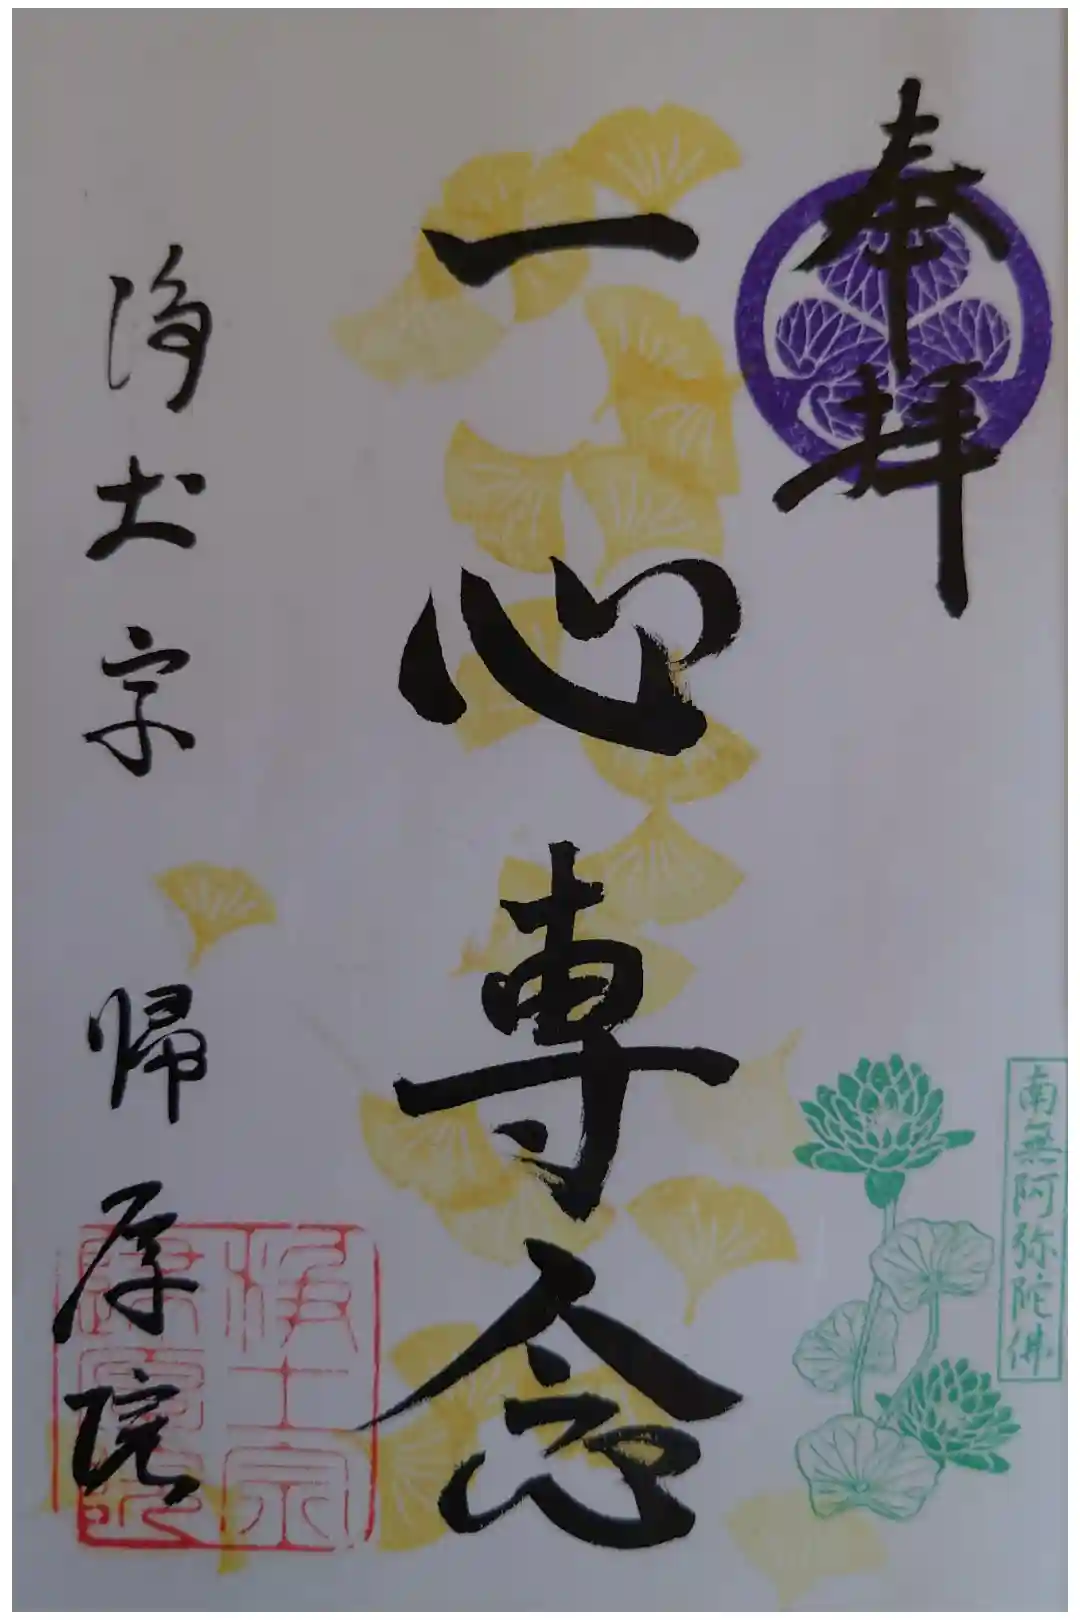 奉拝
南無阿弥陀佛
一心専念
浄土宗 帰厚院
浄土宗